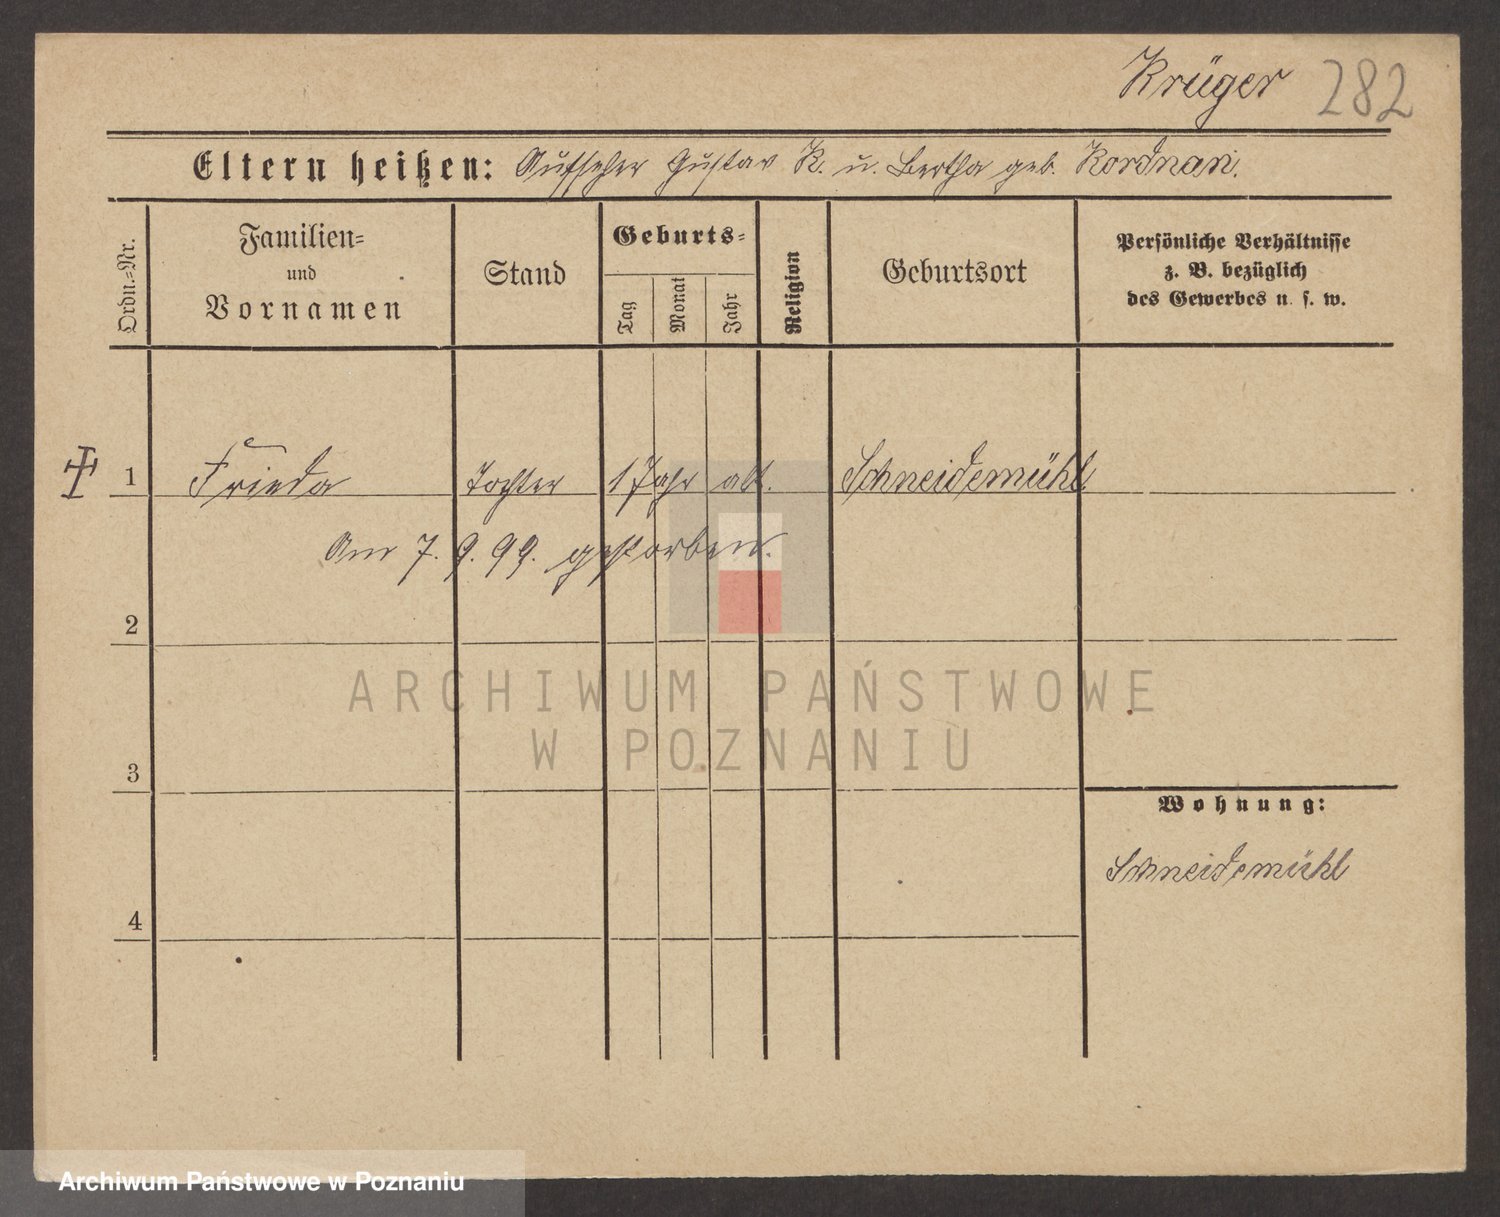 Krüger 282
Eltern heißen: Aufseher Gustav K. u. Bertha geb. Kordnan.
Ordn.=Nr.
Familien=
und
Vornamen
Stand
Geburts=
Tag
Monat
Jahr
Religion
Geburtsort
Persönliche Verhältnisse
z. B. bezüglich
des Gewerbes u. s. w.
1 Frieda Tochter 1 Jahr alt. Schneidemühl
Am 7. 9. 99. gestorben.
2
ARCHIWUM PAŃSTWOWE
W POZNANIU
3
Wohnung:
Schneidemühl
4
Archiwum Państwowe w Poznaniu